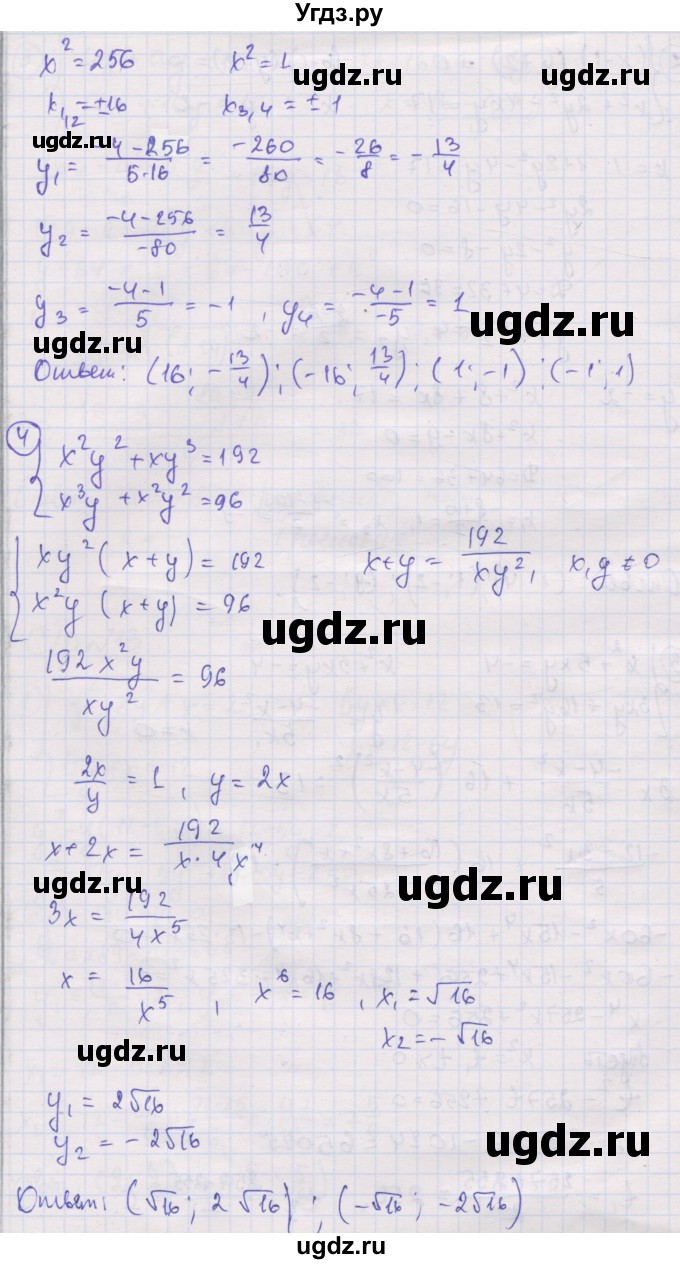 Угдз.ру
x² = 256 x² = 1
ugdz.ru ugdz.ru
x₁,₂ = ±16 x₃,₄ = ±1
ugdz.ru
y₁ = (-4-256)/(5·16) = -260/80 = -26/8 = -13/4
y₂ = (-4-256)/(-80) = 13/4
y₃ = (-4-1)/5 = -1, y₄ = (-4-1)/(-5) = 1
ugdz.ru ugdz.ru
Ответ: (16; -13/4); (-16; 13/4); (1; -1); (-1; 1)
④ { x²y² + xy³ = 192
x³y + x²y² = 96
{ xy²(x+y) = 192 x+y = 192/(xy²), x,y ≠ 0
x²y(x+y) = 96
ugdz.ru
(192x²y)/(xy²) = 96
2x/y = 1, y = 2x
x+2x = 192/(x·4x⁴)
ugdz.ru ugdz.ru
3x = 192/(4x⁵)
x = 16/x⁵, x⁶ = 16, x₁ = √16
x₂ = -√16
ugdz.ru
y₁ = 2√16
y₂ = -2√16
ugdz.ru
Ответ: (√16; 2√16); (-√16; -2√16)
ugdz.ru